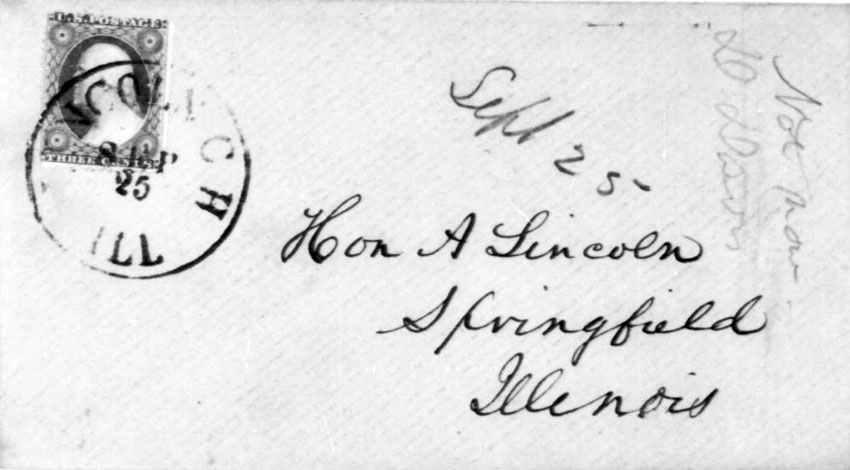 U.S. POSTAGE
THREE CENTS
SEP
25
ILL
Sept 25
Hon A Lincoln
Springfield
Illinois